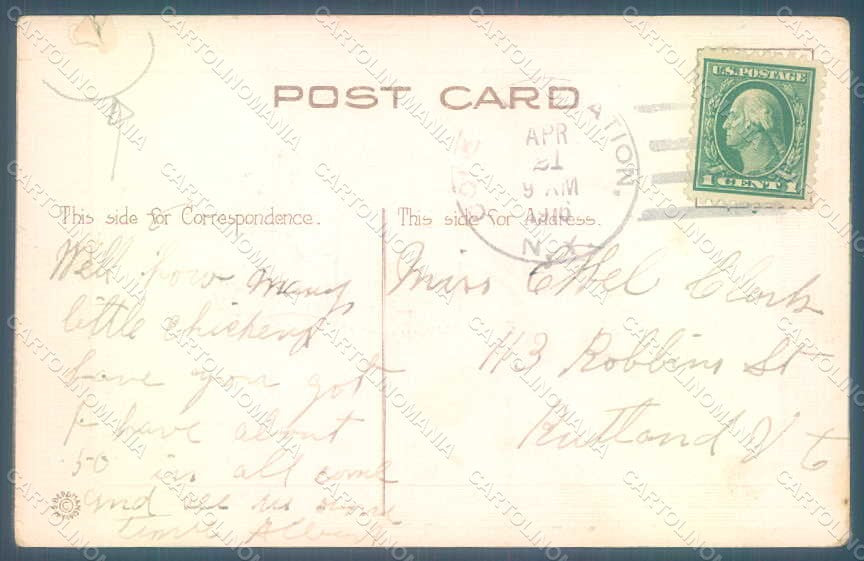 POST CARD
U.S. POSTAGE
1 CENT 1
STATION,
APR
21
9 AM
N.Y.
This side for Correspondence.
This side for Address.
Well how many
little chickens
have you got
I have about
50 in all come
and see us some
time
Miss Ethel Clark
113 Robbins St
Rutland Vt
CARTOLINOMANIA